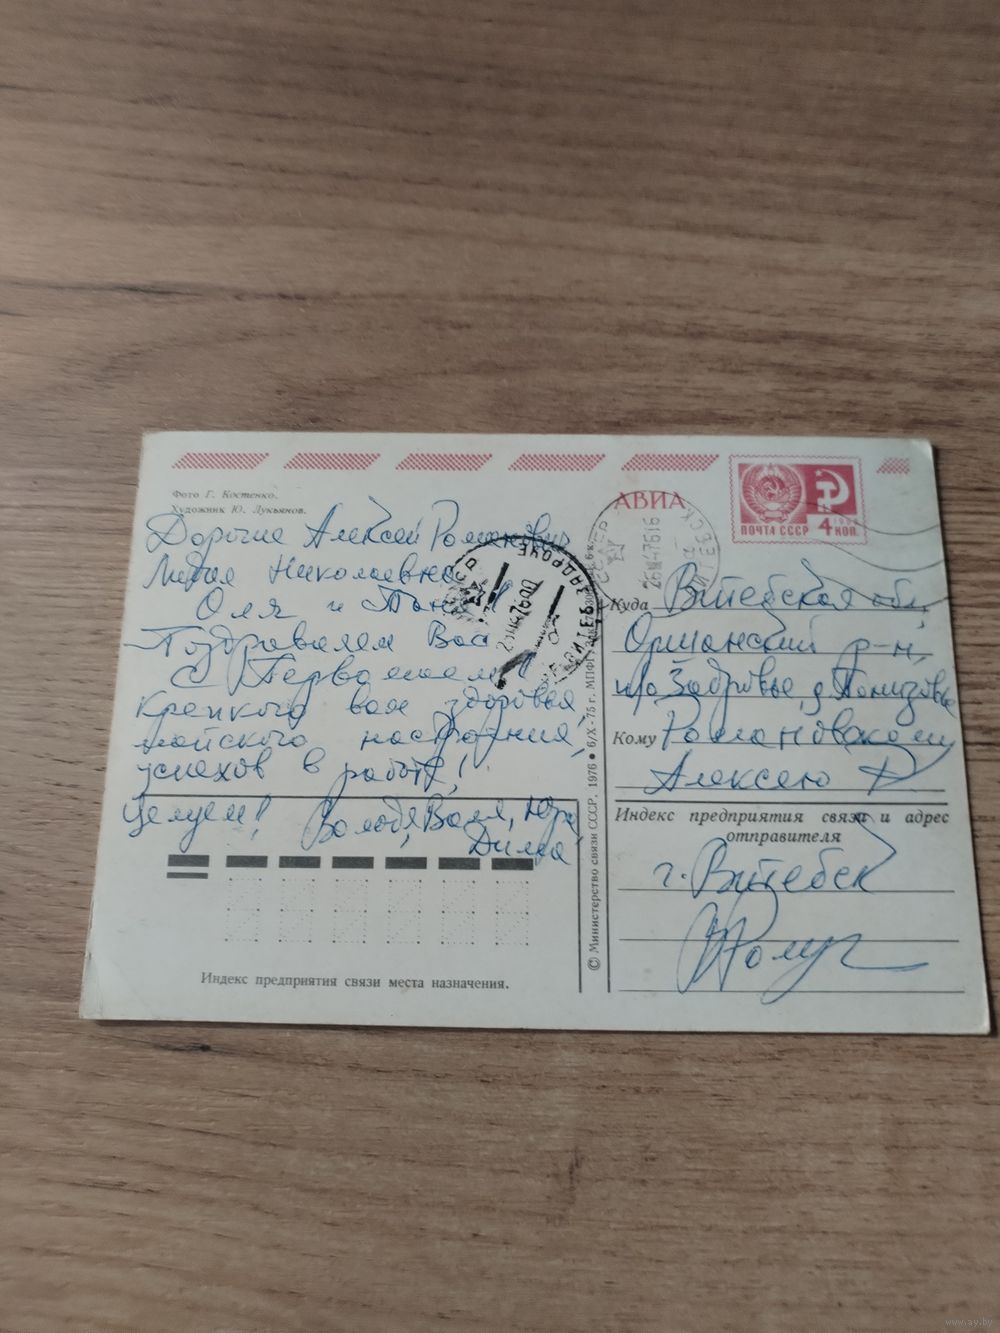 Фото Г. Костенко.
Художник Ю. Лукьянов.
Дорогие Алексей Романович
Лидия Николаевна
Оля и Таня!
Поздравляем Вас
с Первомаем!
Крепкого вам здоровья,
майского настроения,
успехов в работе!
Целуем! Володя, Валя, Юра,
Дима
Индекс предприятия связи места назначения.
© Министерство связи СССР, 1976 • 6/X-75 г. МПФГ
АВИА
ПОЧТА СССР
4 КОП.
ВИТЕБСК
Куда Витебская обл,
Оршанский р-н,
п/о Задровье, д. Понизовье
Кому Романовскому
Алексею Р
Индекс предприятия связи и адрес
отправителя
г. Витебск
www.ay.by